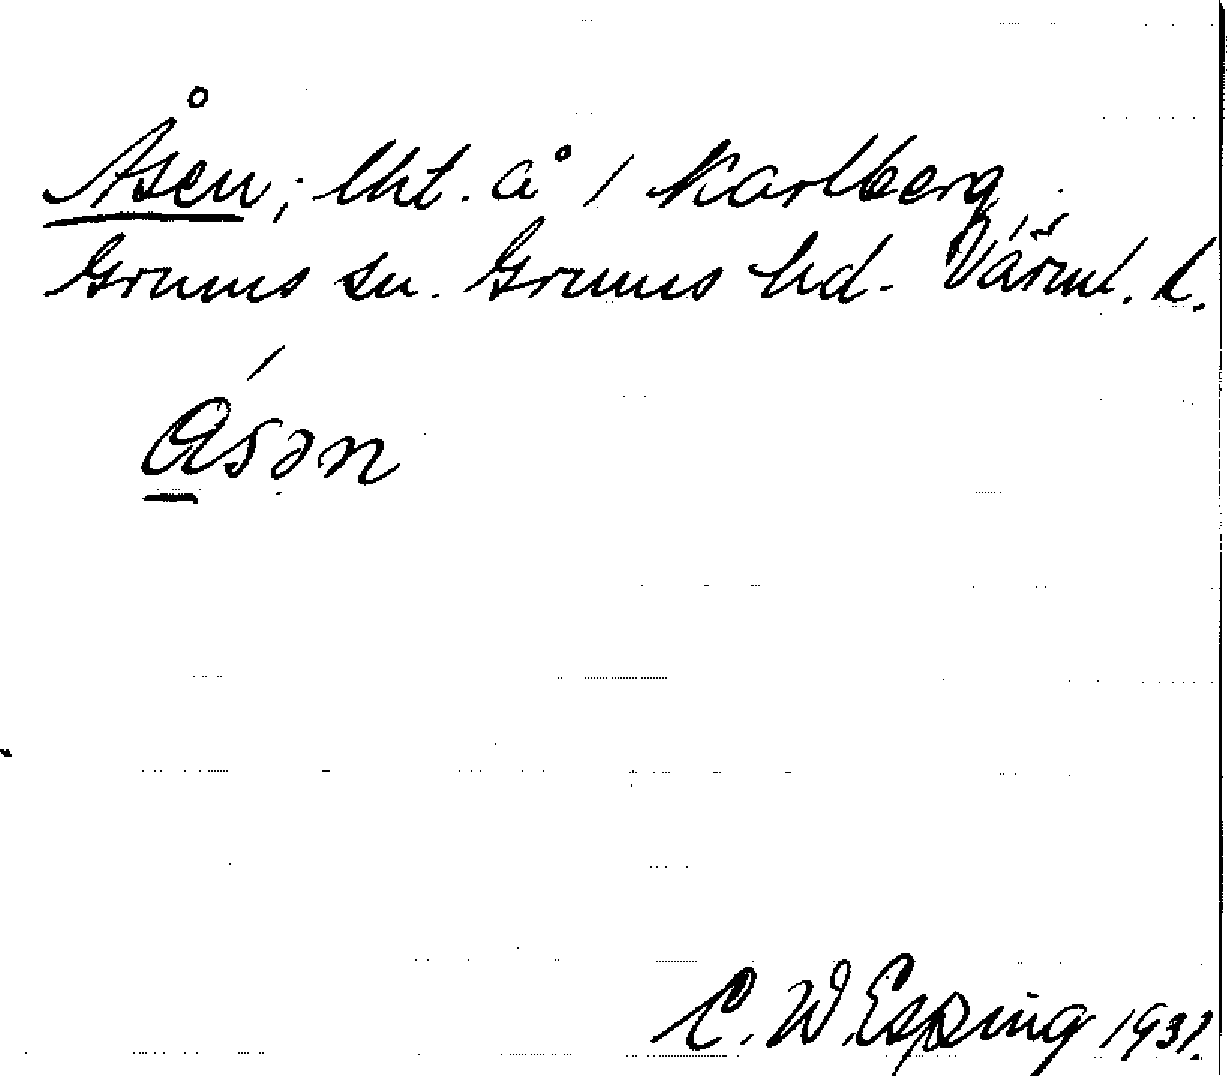 Åsen; lht. å / Karlberg
Grums sn. Grums hd. Värml. l.
åsən
C. W Esping 1931.